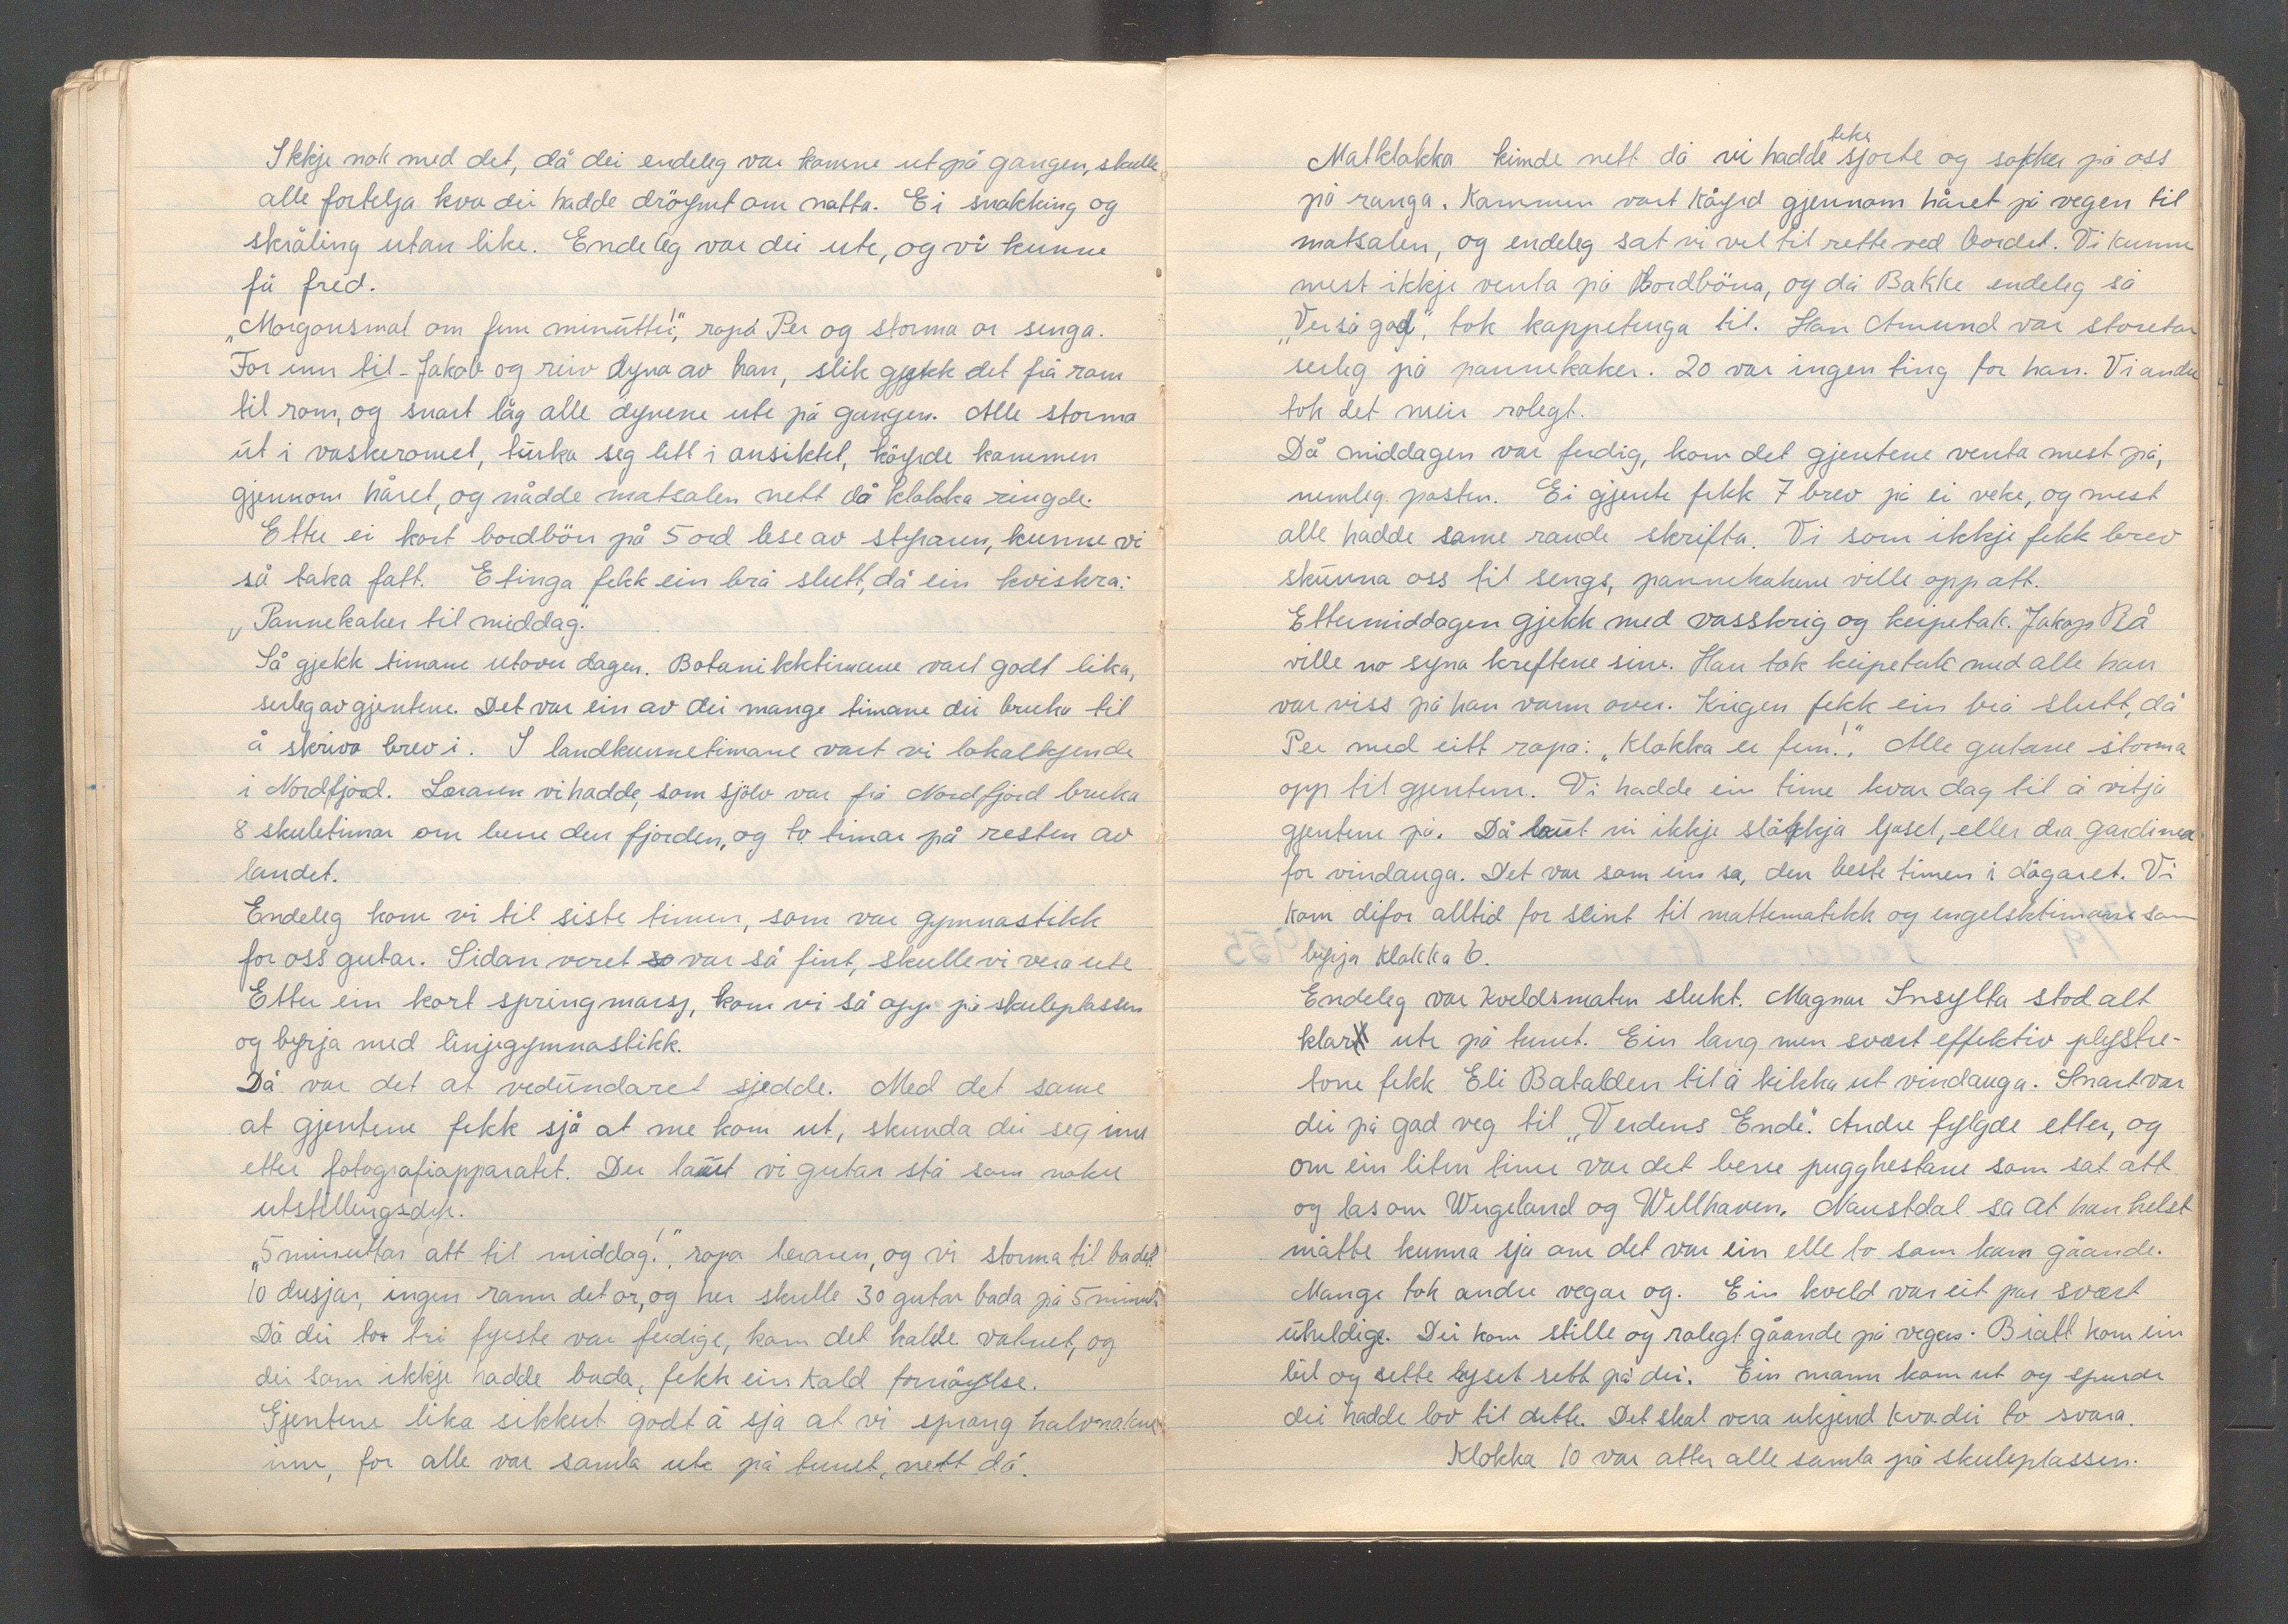 Ikkje nok med det, då dei endeleg var komne ut på gangen, skulle
alle fortelja kva dei hadde dröymt om natta. Ei snakking og
skråling utan like. Endeleg var dei ute, og vi kunne
få fred.
„Morgonsmat om fem minuttar!", ropa Per og storma or senga.
For inn til Jakob og reiv dyna av han, slik gjekk det frå rom
til rom, og snart låg alle dynene ute på gangen. Alle storma
ut i vaskeromet, turka seg litt i ansiktet, köyrde kammen
gjennom håret, og nådde matsalen nett då klokka ringde.
Etter ei kort bordbön på 5 ord lese av styraren, kunne vi
så taka fatt. Etinga fekk ein brå slutt, då ein kviskra:
„Pannekaker til middag".
Så gjekk timane utover dagen. Botanikktimane vart godt lika,
serleg av gjentene. Det var ein av dei mange timane dei bruka til
å skriva brev i. I landkunnetimane vart vi lokalkjende
i Nordfjord. Læraren vi hadde, som sjölv var frå Nordfjord bruka
8 skuletimar om berre den fjorden, og to timar på resten av
landet.
Endeleg kom vi til siste timen, som var gymnastikk
for oss gutar. Sidan veret so var så fint, skulle vi vera ute
Etter ein kort springmarsj, kom vi så opp på skuleplassen
og byrja med linjegymnastikk.
Då var det at vedundaret sjedde. Med det same
at gjentene fekk sjå at me kom ut, skunda dei seg inn
etter fotografiapparatet. Der laut vi gutar stå som nokre
utstillingsdyr.
„5 minuttar att til middag!", ropa læraren, og vi storma til badet.
10 dusjar, ingen rann det or, og her skulle 30 gutar bada på 5 minutt
Då dei to tri fyrste var ferdige, kom det kalde vatnet, og
dei som ikkje hadde bada, fekk ein kald fornöyelse.
Gjentene lika sikkert godt å sjå at vi sprang halvnakne
inn, for alle var samla ute på tunet, nett då.
Matklokka kimde nett då vi hadde fekk sjorte og sokker på oss
på ranga. Kammen vart köyrd gjennom håret på vegen til
matsalen, og endeleg sat vi vel til rette ved bordet. Vi kunne
mest ikkje venta på bordböna, og då Bakke endeleg sa
„Ver så god", tok kappetinga til. Han Amund var storetar
serleg på pannekaker. 20 var ingen ting for han. Vi andre
tok det meir rolegt.
Då middagen var ferdig, kom det gjentene venta mest på,
nemleg posten. Ei gjente fekk 7 brev på ei veke, og mest
alle hadde same rande skrifta. Vi som ikkje fekk brev
skunna oss til sengs, pannekakene ville opp att.
Ettermiddagen gjekk med vasskrig og keipetak. Jakop Rå
ville no syna kreftene sine. Han tok keipetak med alle han
var viss på han vann over. Krigen fekk ein brå slutt, då
Per med eitt ropa: „Klokka er fem!". Alle gutane storma
opp til gjentene. Vi hadde ein time kvar dag til å vitja
gjentene på. Då laut vi ikkje slökkja ljoset, eller dra gardiner
for vindauga. Det var som ein sa, den beste timen i dögeret. Vi
kom difor alltid for seint til mattematikk og engelsktimane som
byrja klokka 6.
Endeleg var kveldsmaten slukt. Magnar Insylta stod alt
klar ute på tunet. Ein lang men svært effektiv plystre-
tone fekk Eli Batalden til å kikka ut vindauga. Snart var
dei på god veg til „Verdens Ende". Andre fylgde etter, og
om ein liten time var det berre pugghestane som sat att
og las om Wergeland og Wellhaven. Naustdal sa at han helst
måtte kunna sjå om det var ein elle to som kom gåande.
Mange tok andre vegar og. Ein kveld var eit par svært
uheldige. Dei kom stille og rolegt gåande på vegen. Brått kom ein
bil og sette lyset rett på dei. Ein mann kom ut og spurde
dei hadde lov til dette. Det skal vera ukjend kva dei to svara.
Klokka 10 var atter alle samla på skuleplassen.